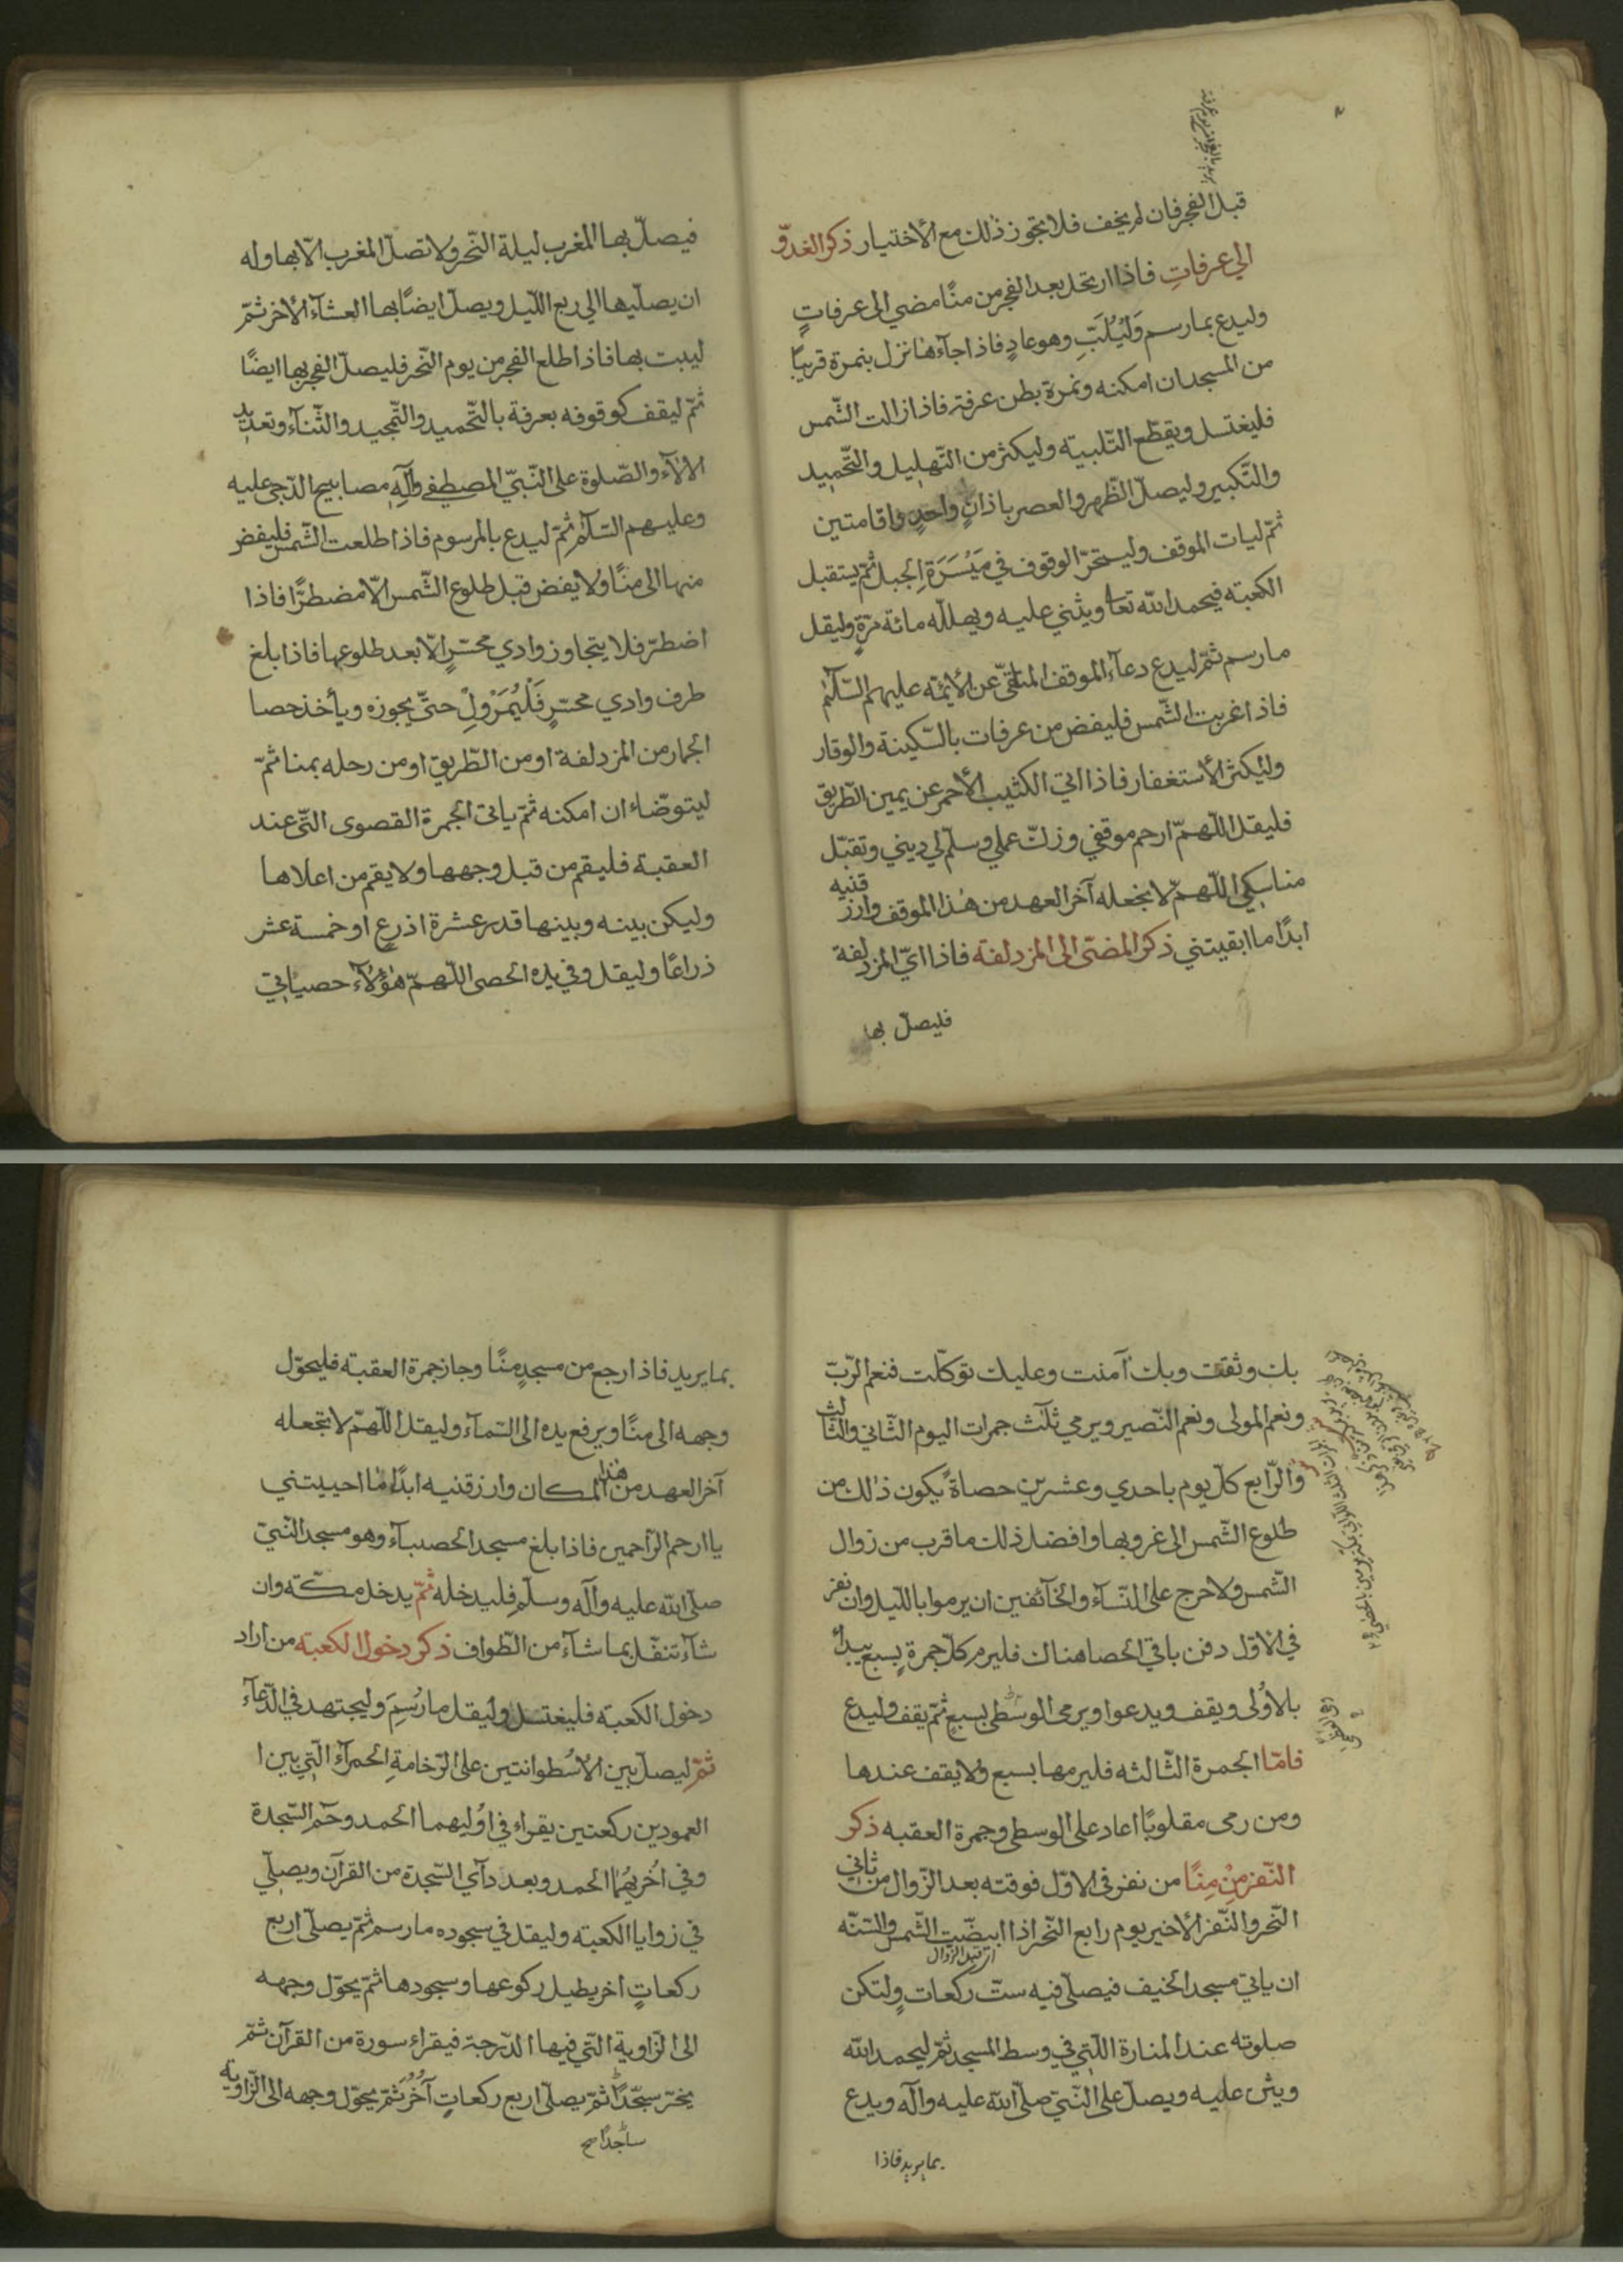 قبل الفجر فان لم يخف فلا يجوز ذلك مع الأختيار ذكر الغدوّ
الي عرفاتٍ فاذا ارتحل بعد الفجر من منًا مضي الى عرفاتٍ
وليدع بما رسم وَلْيُلَبِّ وهو غادٍ فاذا جآءها نزل بنمرة قريبًا
من المسجد ان امكنه ونمرة بطن عرفة فاذا زالت الشّمس
فليغتسل ويقطّع التّلبيته وليكثر من التّهليل والتّحميد
والتّكبير وليصلّ الظّهر والعصر باذانٍ واحدٍ واقامتين
ثمّ ليات الموقف وليستحرّ الوقوف في مَيْسَرَة الجبل ثمّ يستقبل
الكعبته فيحمد الله تعا ويثني عليه ويهلّله مائة مرّةٍ وليقل
ما رسم ثمّ ليدع دعآء الموقف المتلقّي عن الأئمّه عليهم السّلٰم
فاذا غربت الشّمس فليفض من عرفات بالسّكينة والوقار
وليكثر الأستغفار فاذا اتي الكثيب الأحمر عن يمين الطّريق
فليقل اللّهمّ ارحم موقفي وزكّ عملي وسلّم لي ديني وتقبّل
مناسكي اللّهمّ لا تجعله آخر العهد من هٰذا الموقف وارزقنيه
ابدًا ما ابقيتني ذكر المضيّ الى المزدلفة فاذا اتيّ المزدلفة
فليصلّ بها
فيصلّ بها المغرب ليلة النّحر ولا تصلّ المغرب الّا بها وله
ان يصلّيها الي ربع اللّيل ويصلّ ايضًا بها العشآء الأخر ثمّ
ليبت بها فاذا طلع الفجر من يوم النّحر فليصلّ الفجر بها ايضًا
ثمّ ليقف كوقوفه بعرفة بالتّحميد والتّمجيد والثّنآء وتعديد
الالآء والصّلوة على النّبيّ المصطفي وآلِهِ مصابيح الدّجي عليه
وعليهم السّلٰم ثمّ ليدع بالمرسوم فاذا طلعت الشّمس فليفض
منها الى منًا ولا يفض قبل طلوع الشّمس الّا مضطرًّا فاذا
اضطرّ فلا يتجاوز وادي محسّرٍ الّا بعد طلوعها فاذا بلغ
طرف وادي محسّرٍ فَلْيُهَرْوِلْ حتّي يجوزه ويأخذ حصا
الجمار من المزدلفة او من الطّريق او من رحله بمنا ثمّ
ليتوضّاء ان امكنه ثمّ ياتى الجمرة القصوى الّتي عند
العقبة فليقم من قبل وجهها ولا يقم من اعلاها
وليكن بينه وبينها قدر عشرة اذرعٍ او خمسة عشر
ذراعًا وليقل وفي يده الحصى اللّهمّ هٰؤلآء حصياتي
بك وثقت وبك آمنت وعليك توكّلت فنعم الرّبّ
ونعم المولى ونعم النّصير ويرمي ثلٰث جمرات اليوم الثّاني والثّالث
والرّابع كلّ يوم باحدي وعشرين حصاة يكون ذٰلك من
طلوع الشّمس الى غروبها وافضل ذلك ما قرب من زوال
الشّمس ولا حرج على النّسآء والخآئفين ان يرموا بالليل وان نفر
في الاوّل دفن باقي الحصا هناك فليرم كلّ جمرةٍ بسبع يبدأ
بالاوُلى ويقف ويدعوا ويرمى الوسطى بسبعٍ ثمّ يقف وليدع
فامّا الجمرة الثّالثه فليرمها بسبع ولا يقف عندها
ومن رمى مقلوبًا اعاد على الوسطى وجمرة العقبه ذكر
النّفر مِنْ مِنًا من نفر فى الاوّل فوقته بعد الزّوال من ثاني
النّحر والنّفر الأخير يوم رابع النّحر اذا ابيضّت الشّمس والسّنّه
اى قبل الزّوال
ان ياتي مسجد الخيف فيصلّي فيه ستّ ركعات ولتكن
صلوته عند المنارة اللّتي في وسط المسجد ثمّ ليحمد الله
ويثن عليه ويصلّ على النّبيّ صلّى الله عليه وآله ويدع
بما يريد فاذا
بما يريد فاذا رجع من مسجدٍ منًا وجاز جمرة العقبته فليحوّل
وجهه الى منًا ويرفع يده الى السّمآء وليقل اللّهمّ لا تجعله
آخر العهد من هٰذا المكان وارزقنيه ابدًا ما احييتني
يا ارحم الرّاحمين فاذا بلغ مسجد الحصبآء وهو مسجد النّبيّ
صلّى الله عليه وآله وسلّم فليدخله ثمّ يدخل مكّته وان
شآء تنفّل بما شآء من الطّواف ذكر دخول الكعبته من اراد
دخول الكعبّة فليغتسل وليقل ما رُسِمَ وليجتهد في الدّعآء
ثمّ ليصلّ بين الاُسْطوانتين على الرّخامةِ الحمرآء الّتي بين ا
العمودين ركعتين يقراء في اوُليهما الحمد وحٓم السّجدة
وفي اُخريهُما الحمد وبعدد آي السّجدة من القرآن ويصلّي
في زوايا الكعبّه وليقل في سجوده ما رسم ثمّ يصلّى اربع
ركعاتٍ اخر يطيل ركوعها وسجودها ثمّ يحوّل وجهه
الى الزّاوية الّتي فيها الدّرجة فيقراء سورة من القرآن ثمّ
يخرّ سجّدًا ثمّ يصلّى اربع ركعاتٍ آُخُرَ ثمّ يحوّل وجهه الى الزّاوية
ساجدًا صح